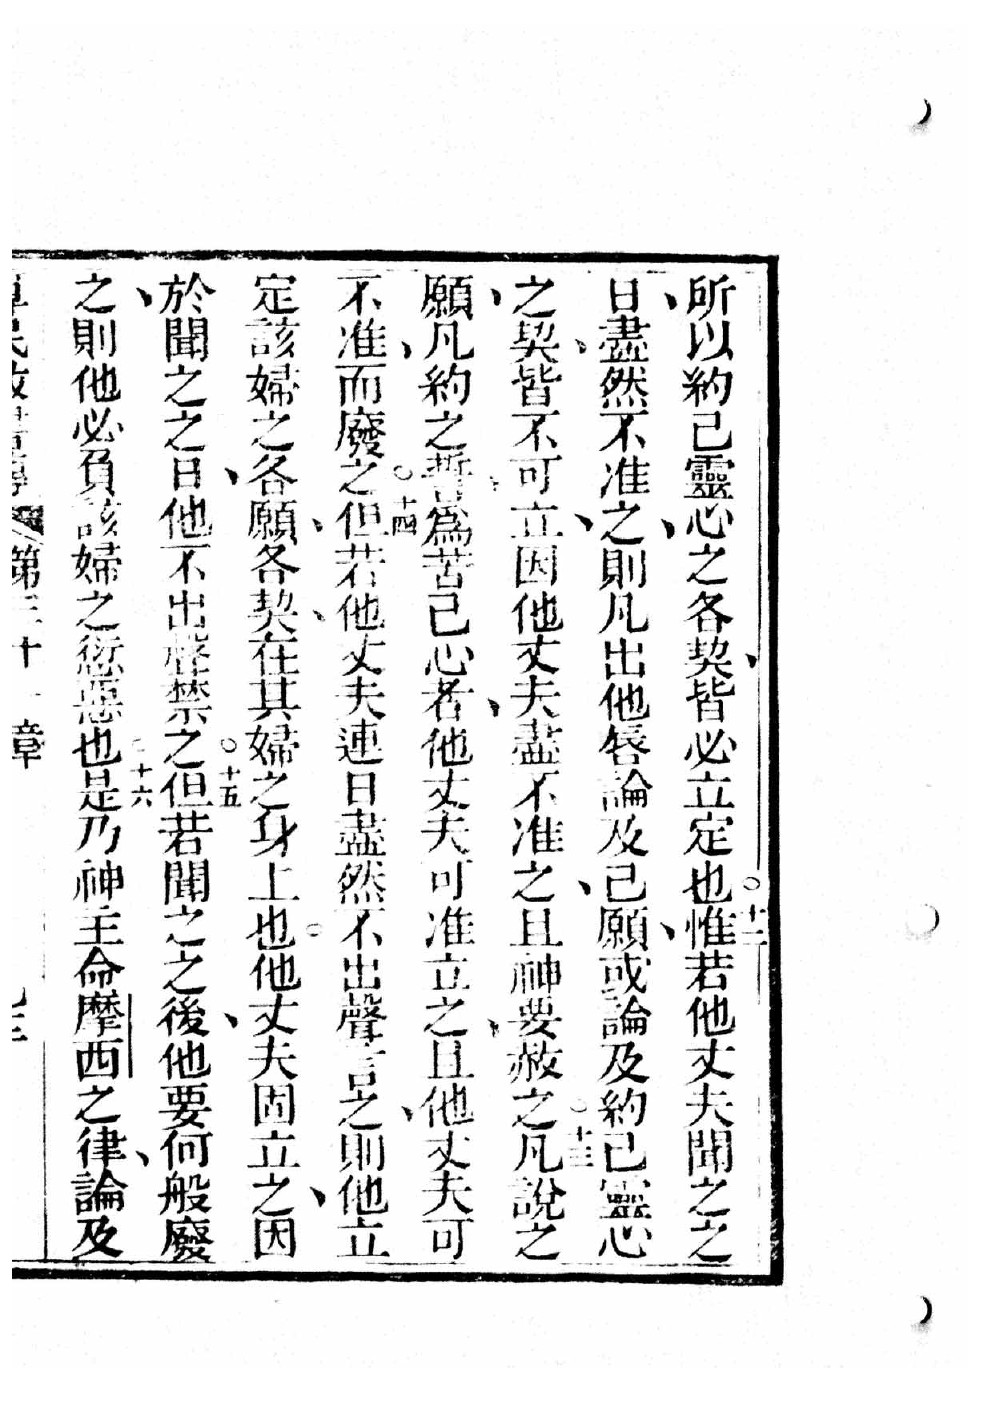 所以約己靈心之各契、皆必立定也。十二惟若他丈夫聞之之
日、盡然不准之、則凡出他唇論及己願、或論及約己靈心
之契、皆不可立、因他丈夫盡不准之、且神要赦之。十三凡說之
願、凡約之誓、爲苦己心者、他丈夫可准立之、且他丈夫可
不准、而廢之。十四但若他丈夫連日盡然不出聲言之、則他立
定該婦之各願、各契、在其婦之身上也。他丈夫固立之、因
於聞之之日、他不出聲禁之。十五但若聞之之後、他要何般廢
之、則他必負該婦之愆惡也。十六是乃神主命摩西之律、論及
第三十一章